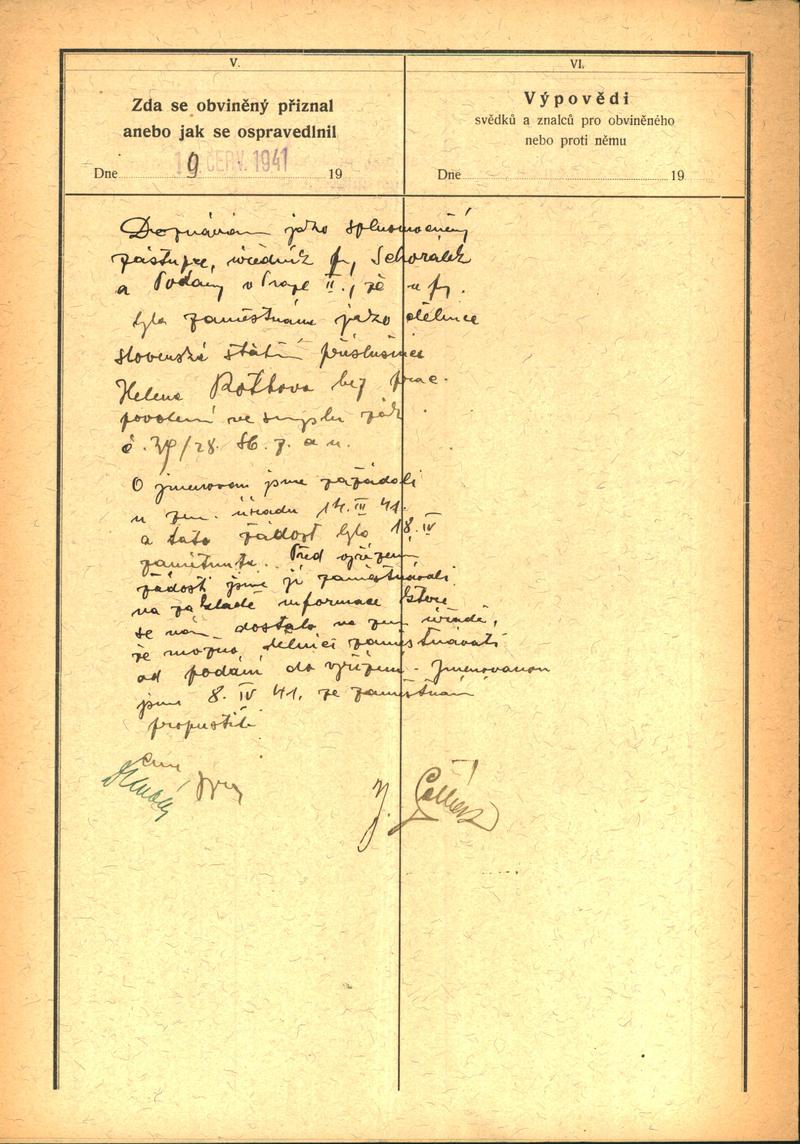 V.
Zda se obviněný přiznal
anebo jak se ospravedlnil
Dne 9 ČERV. 1941 19
VI.
Výpovědi
svědků a znalců pro obviněného
nebo proti němu
Dne 19
Doznávám jako splnomocněný
zástupce, úředník f, Schorálek
a Podaný v Praze II., že u fy.
byla zaměstnána jako dělnice
slovenská státní příslušnice
Helena bez prac.
povolení ve smyslu zák.
č. /28. Sb. z. a n.
O jmenovanou jsme zažádali
u zem. úřadu 14. III 41.
a tato žádost byla 18. IV
zamítnuta. Před vyřízením
žádosti jsme ji zaměstnávali
na základě informace které
se nám dostalo na zem úřadě,
že možno dělnici zaměstnávati
od podání do vyřízení. Jmenovanou
jsme 8. IV 41. ze zaměstnání
propustili
J.